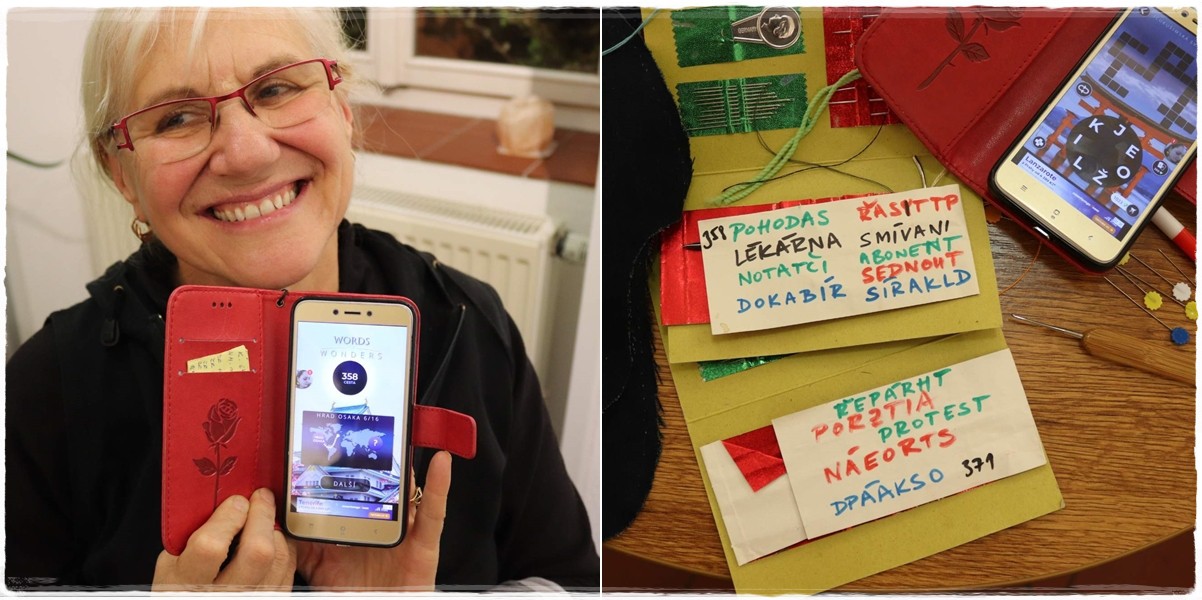 WORDS
WONDERS
358
CESTA
HRAD OSAKA 6/16
?
DALŠÍ
K J E O Ž L
Lanzarote
358 POHODAS
LÉKÁRNA
NOTATČÍ
DOKABÍR
ŘASITTP
SMÍVANI
ABONENT
SEDNOUT
SÍRAKLD
ŘEPÁRHT
PORZTIA
PROTEST
NÁEORTS
DPÁAKSO 371